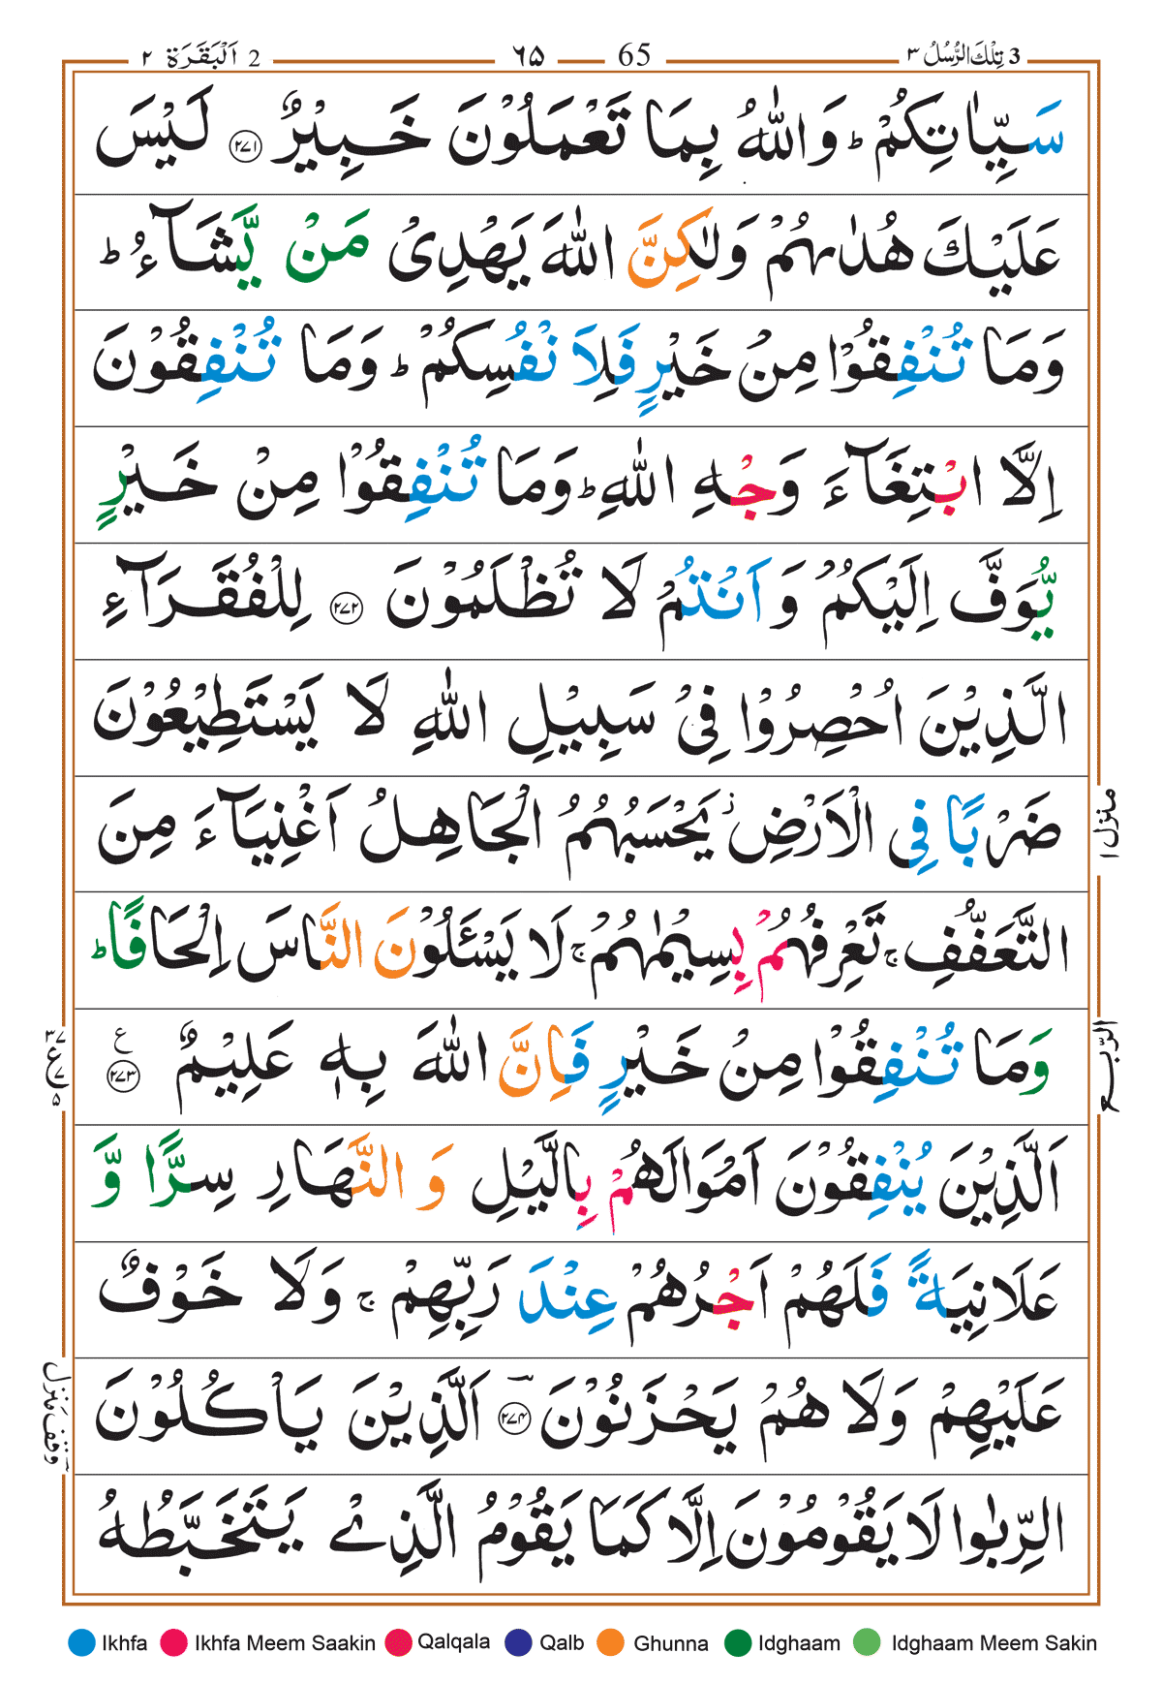 3 تِلْكَ الرُّسُلُ ٣    65    ٦٥    2 اَلْبَقَرَة ٢
سَيِّاٰتِكُمْ ؕ وَاللّٰهُ بِمَا تَعْمَلُوْنَ خَبِيْرٌ ﴿۲۷۱﴾ لَيْسَ
عَلَيْكَ هُدٰىهُمْ وَلٰكِنَّ اللّٰهَ يَهْدِىْ مَنْ يَّشَآءُ ؕ
وَمَا تُنْفِقُوْا مِنْ خَيْرٍ فَلِاَنْفُسِكُمْ ؕ وَمَا تُنْفِقُوْنَ
اِلَّا ابْتِغَآءَ وَجْهِ اللّٰهِ ؕ وَمَا تُنْفِقُوْا مِنْ خَيْرٍ
يُّوَفَّ اِلَيْكُمْ وَ اَنْتُمْ لَا تُظْلَمُوْنَ ﴿۲۷۲﴾ لِلْفُقَرَآءِ
الَّذِيْنَ اُحْصِرُوْا فِىْ سَبِيْلِ اللّٰهِ لَا يَسْتَطِيْعُوْنَ
ضَرْبًا فِى الْاَرْضِ ؗ يَحْسَبُهُمُ الْجَاهِلُ اَغْنِيَآءَ مِنَ
التَّعَفُّفِ ۚ تَعْرِفُهُمْ بِسِيْمٰهُمْ ۚ لَا يَسْـَٔلُوْنَ النَّاسَ اِلْحَافًا ؕ
وَمَا تُنْفِقُوْا مِنْ خَيْرٍ فَاِنَّ اللّٰهَ بِهٖ عَلِيْمٌ ﴿۲۷۳﴾ ع
اَلَّذِيْنَ يُنْفِقُوْنَ اَمْوَالَهُمْ بِالَّيْلِ وَ النَّهَارِ سِرًّا وَّ
عَلَانِيَةً فَلَهُمْ اَجْرُهُمْ عِنْدَ رَبِّهِمْ ۚ وَلَا خَوْفٌ
عَلَيْهِمْ وَلَا هُمْ يَحْزَنُوْنَ ﴿۲۷۴﴾ اَلَّذِيْنَ يَاْكُلُوْنَ
الرِّبٰوا لَا يَقُوْمُوْنَ اِلَّا كَمَا يَقُوْمُ الَّذِىْ يَتَخَبَّطُهُ
منزل ١
الرّبع
٣٧ ع ٧ ٥
وقف منزل
Ikhfa Ikhfa Meem Saakin Qalqala Qalb Ghunna Idghaam Idghaam Meem Sakin